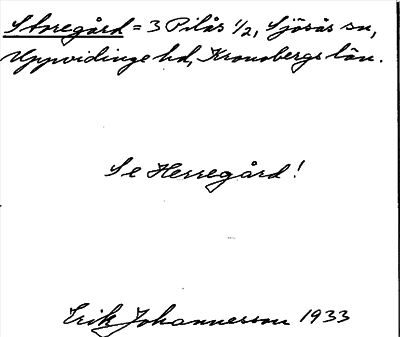 Storegård = 3 Pilås 1/2, Sjösås sn,
Uppvidinge hd, Kronobergs län.
Se Herregård!
Erik Johannesson 1933